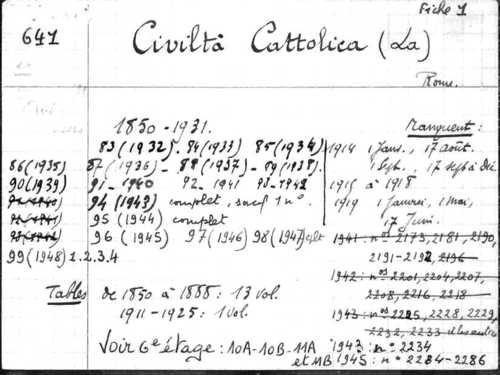 Fiche 1
641
Civiltà Cattolica (La)
Rome.
1850-1931.
Manquent :
83 (1932). 84 (1933) 85 (1934)
1914 1 Janv., 17 août.
1 Sept. 17 sept à Déc
86 (1935) 87 (1936) - 88 (1937) - 89 (1938).
90 (1939) 91 - 1940 92 - 1941 93 - 1942
1915 à 1918
94 (1943) complet, sauf 1 n°.
1919 1 Janvier, 1 Mai,
17 Juin.
95 (1944) complet
96 (1945) 97 (1946) 98 (1947) cplt
1941 : nos 2173, 2181, 2190,
2191-2192, 2196
99 (1948) 1.2.3.4
1942 : nos 2201, 2204, 2207,
2208, 2216, 2218
Tables de 1850 à 1888 : 13 vol.
1911-1925 : 1 vol.
1943 : nos 2225, 2228, 2229,
2232, 2233
Voir 6e étage : 10A-10B-11A
et 11B
1943 : n° 2234
1945 : n° 2284-2286